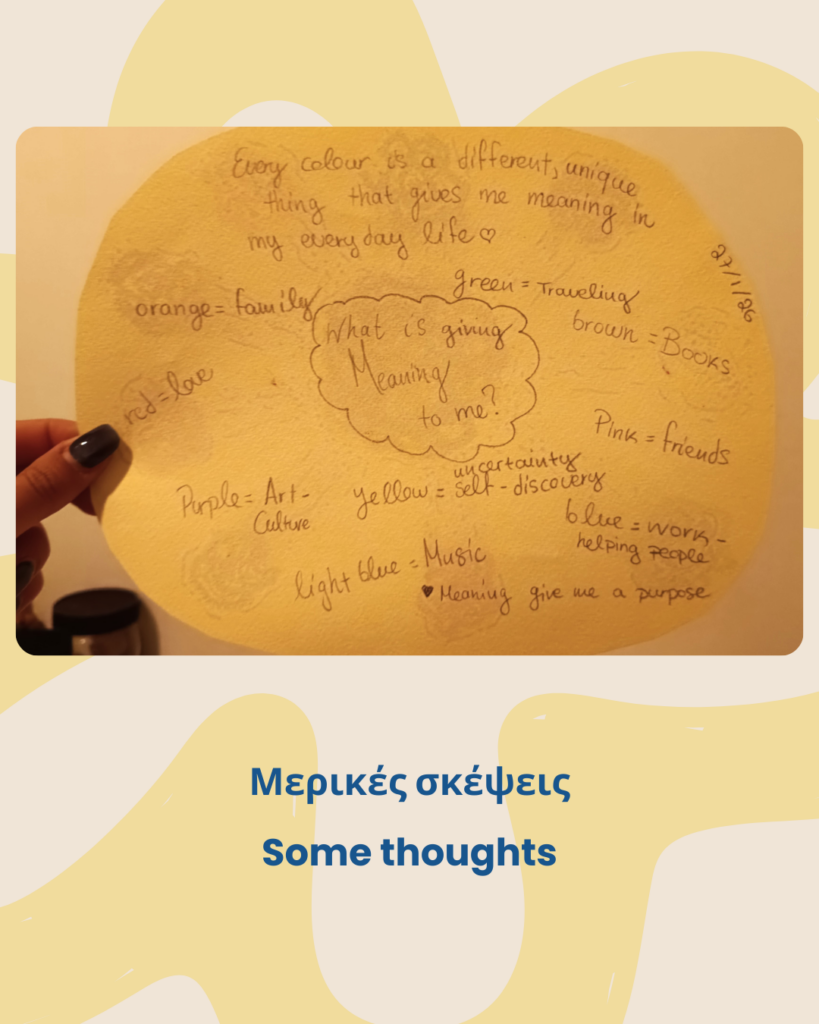 Every colour is a different, unique
thing that gives me meaning in
my everyday life ♡
27/1/26
green = Traveling
orange = family
brown = Books
What is giving
Meaning
to me?
red = love
Pink = friends
Purple = Art -
Culture
yellow = uncertainty
self - discovery
blue = work -
helping people
light blue = Music
♥ Meaning give me a purpose
Μερικές σκέψεις
Some thoughts